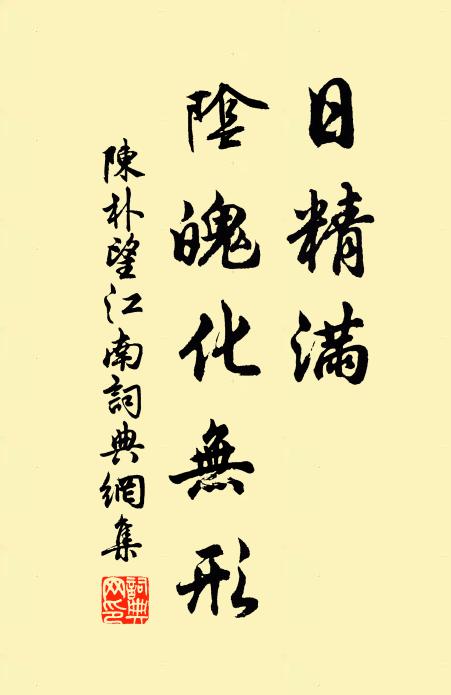 日精滿
陰魄化無形
陳朴望江南詞典網集
詞典網印